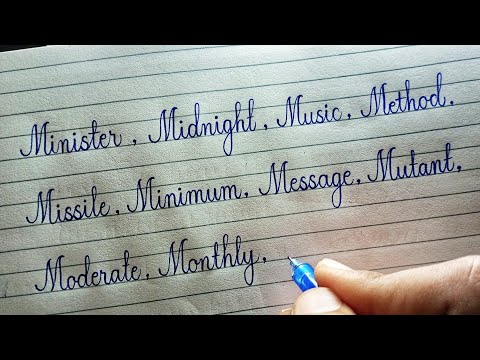 Minister, Midnight, Music, Method,
Missile, Minimum, Message, Mutant,
Moderate, Monthly,